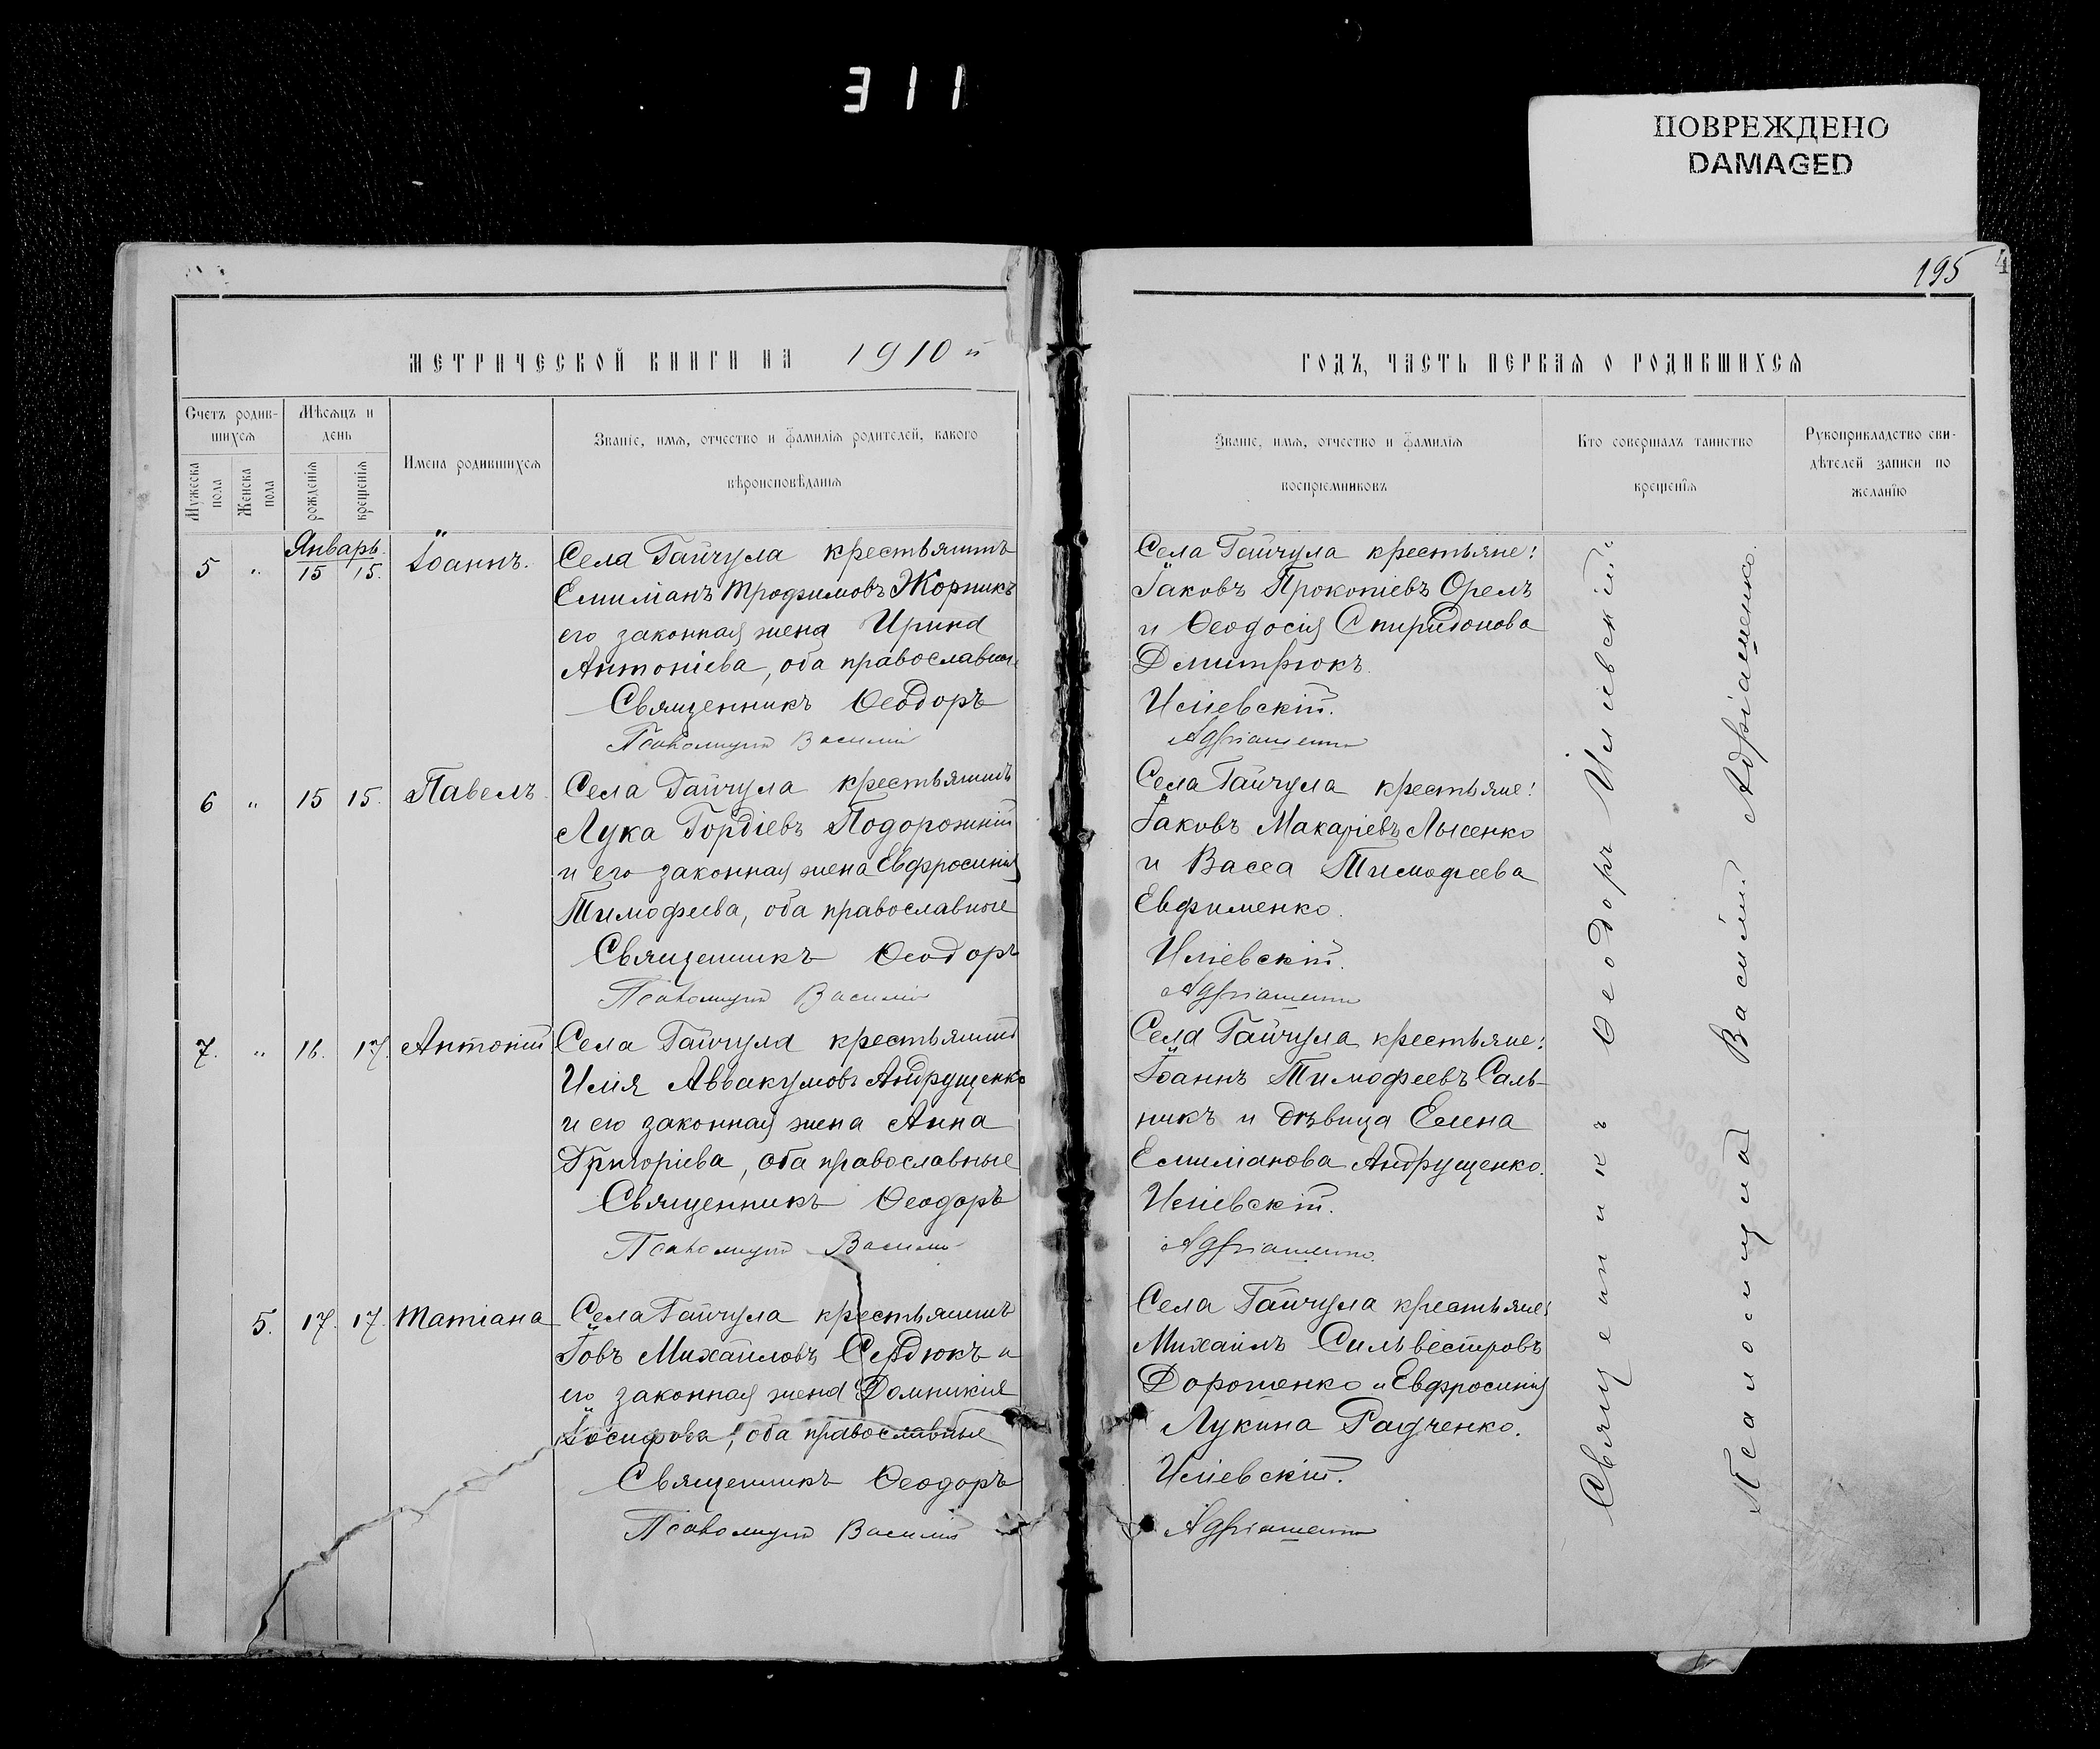 311
ПОВРЕЖДЕНО
DAMAGED
195
4
МЕТРИЧЕСКОЙ КНИГИ НА 1910 й
Счетъ родив-
шихся
Мѣсяцъ и
день
Имена родившихся
Званіе, имя, отчество и фамилія родителей, какого
вѣроисповѣданія
Мужеска
пола
Женска
пола
рожденія
крещенія
Январь.
5 " 15 15. Іоаннъ.
Села Гайчула крестьянинъ
Емиліанъ Трофимовъ Жорникъ
его законная жена Ирина
Антоніева, оба православные
Священникъ Ѳеодоръ
Псаломщикъ Василій
6 " 15 15. Павелъ
Села Гайчула крестьянинъ
Лука Гордіевъ Подорожній
и его законная жена Евфросинія
Тимофеева, оба православные
Священникъ Ѳеодоръ
Псаломщикъ Василій
7. " 16. 17. Антоній
Села Гайчула крестьянинъ
Илія Аввакумовъ Андрущенко
и его законная жена Анна
Григоріева, оба православные
Священникъ Ѳеодоръ
Псаломщикъ Василій
5. 17. 17. Татіана
Села Гайчула крестьянинъ
Іовъ Михаиловъ Сердюкъ и
его законная жена Домникія
Іосифова, оба православные
Священникъ Ѳеодоръ
Псаломщикъ Василій
ГОДЪ, ЧАСТЬ ПЕРВАЯ О РОДИВШИХСЯ
Званіе, имя, отчество и фамилія
воспріемниковъ
Кто совершалъ таинство
крещенія
Рукоприкладство сви-
дѣтелей записи по
желанію
Села Гайчула крестьяне:
Іаковъ Прокопіевъ Орелъ
и Ѳеодосія Спиридонова
Дмитрюкъ.
Иліевскій.
Адріашенко
Села Гайчула крестьяне:
Іаковъ Макаріевъ Лысенко
и Васса Тимофеева
Евфименко.
Иліевскій.
Адріашенко
Села Гайчула крестьяне:
Іоаннъ Тимофеевъ Саль-
никъ и дѣвица Елена
Емиліанова Андрущенко.
Иліевскій.
Адріашенко.
Села Гайчула крестьяне:
Михаилъ Сильвестровъ
Дорошенко и Евфросинія
Лукина Радченко.
Иліевскій.
Адріашенко
Священникъ Ѳеодоръ Иліевскій
Псаломщикъ Василій Адріашенко.